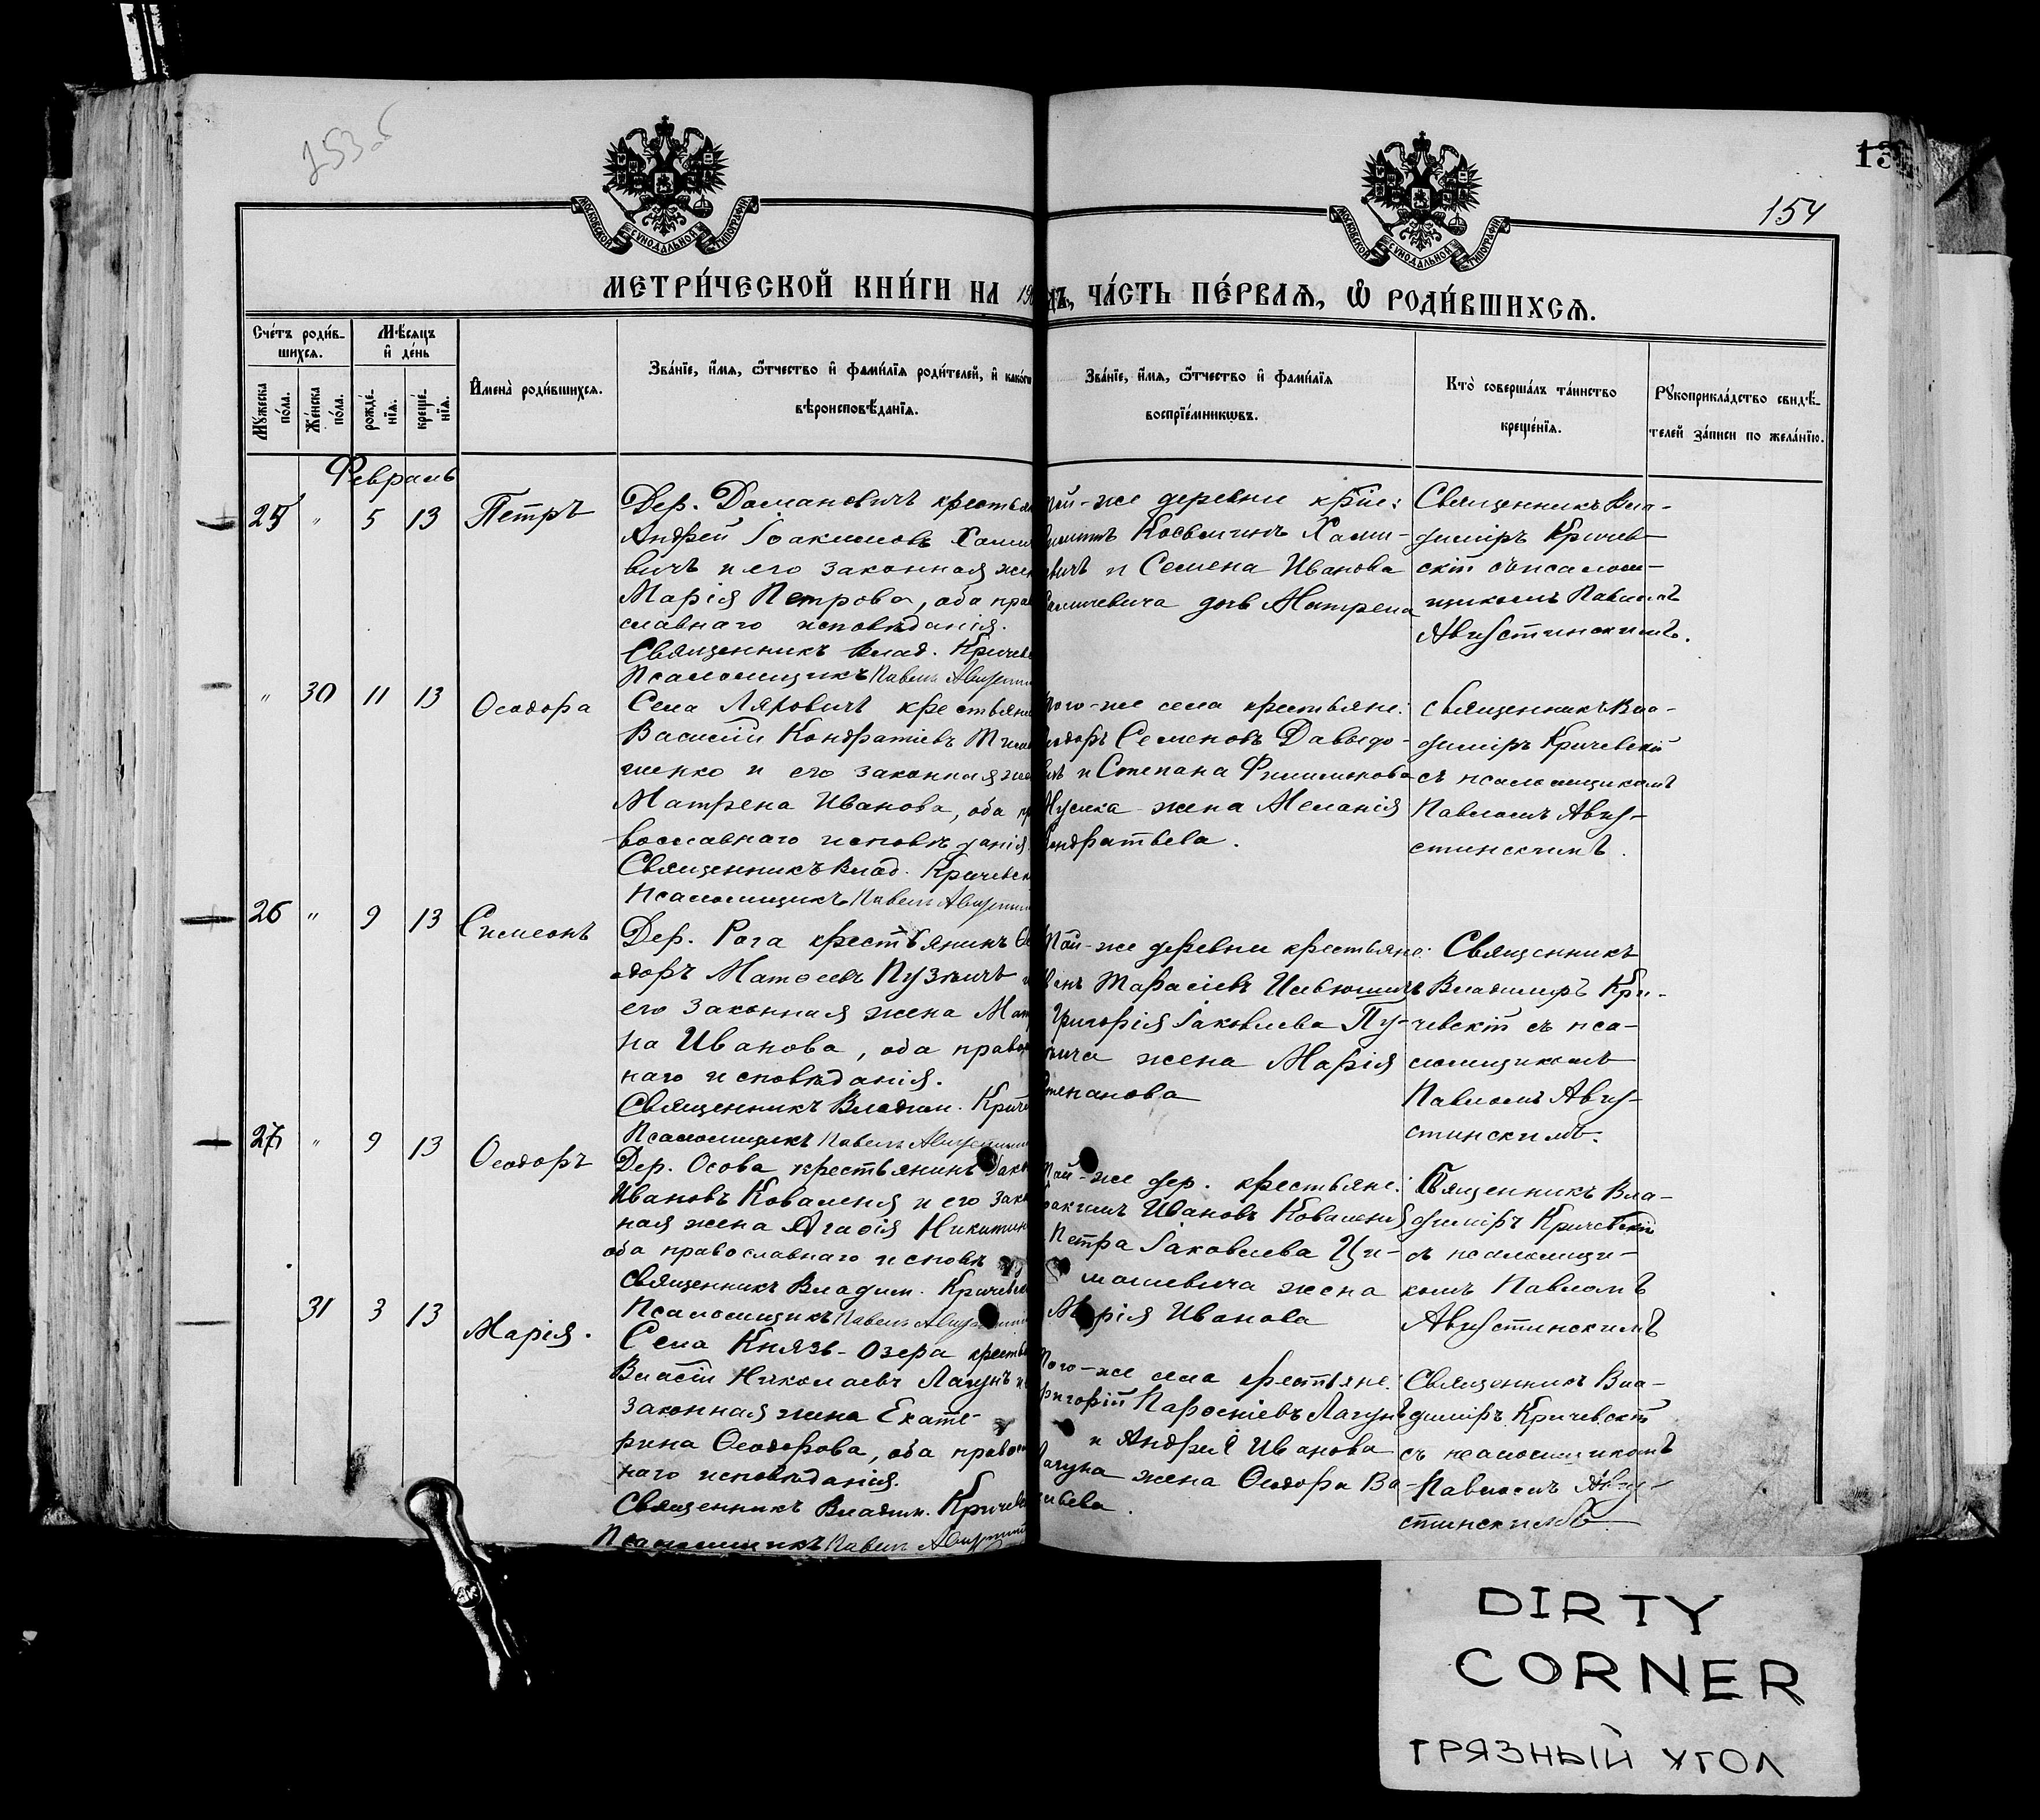 153об
13
154
МОСКОВСКОЙ СѴНОДАЛЬНОЙ ТИПОГРАФІИ
МОСКОВСКОЙ СѴНОДАЛЬНОЙ ТИПОГРАФІИ
МЕТРИ́ЧЕСКОЙ КНИ́ГИ НА 19
дъ, ЧА́СТЬ ПЕ́РВАѦ, Ѽ РОДИ́ВШИХСѦ.
Сче́тъ роди́в-
шихсѧ.
Мѣ́сѧцъ
и҆ де́нь
Мꙋ́жеска
по́ла.
Же́нска
по́ла.
рожде́-
нїѧ.
креще́-
нїѧ.
И҆мена̀ роди́вшихсѧ.
Зва́нїе, и҆́мѧ, ѻ҆́тчество и҆ фами́лїѧ роди́телей, и҆ како́гѡ
вѣроисповѣ́данїѧ.
Зва́нїе, и҆́мѧ, ѻ҆́тчество и҆ фами́лїѧ
воспрїе́мникѡвъ.
Кто̀ соверша́лъ та́инство
креще́нїѧ.
Рꙋкоприкла́дство свидѣ́-
телей за́писи по жела́нїю.
Февраль
25 " 5 13 Петръ
Дер. Домановичъ крестьян
Андрей Іоакимовъ Хами
вичъ и его законная жен
Марія Петрова, оба прав
славнаго исповѣданія.
Священникъ Влад. Кричев
Псаломщикъ Павелъ Августин
той-же деревни крест:
Косьминъ Хами-
евичъ и Семена Иванова
дочь Матрена
Священникъ Вла-
диміръ Кричев-
скій съ псалом-
щикомъ Павломъ
Августинскимъ.
" 30 11 13 Ѳеодора
Села Ляховичъ крестьяни
Василій Кондратіевъ
и его законная же
Матрена Иванова, оба пр
вославнаго исповѣданія.
Священникъ Влад. Кричевск
Псаломщикъ Павелъ Августин
того-же села крестьяне:
Ѳеодоръ Семеновъ Давыдо-
вичъ и Степана Филимонова
жена Меланія
Кондратьева.
Священникъ Вла-
диміръ Кричевскій
съ псаломщикомъ
Павломъ Авгу-
стинскимъ.
26 " 9 13 Симеонъ
Дер. Рога крестьянинъ Ѳе
одоръ Матѳеевъ Пузичъ и
его законная жена Мат
на Иванова, оба правос
наго исповѣданія.
Священникъ Владим. Крич
Псаломщикъ Павелъ Августин
той-же деревни крестьяне:
Тарасіевъ
Григорія Іаковлева Пу-
зича жена Марія
Степанова
Священникъ
Владиміръ Кри-
чевскій съ пса-
ломщикомъ
Павломъ Авгу-
стинскимъ.
27 " 9 13 Ѳеодоръ
Дер. Осова крестьянинъ Іако
Ивановъ Коваленя и его зако
ная жена Агаѳія Никитин
оба православнаго исповѣ
Священникъ Владим. Кричевск
Псаломщикъ Павелъ Августин
той-же дер. крестьяне:
Іоакимъ Ивановъ Коваленя
Петра Іаковлева Ци-
мошевича жена
Марія Иванова
Священникъ Вла-
диміръ Кричевскій
съ псаломщи-
комъ Павломъ
Августинскимъ
31 3 13 Марія.
Села Князь-Озера крестья
Власій Николаевъ Лагунъ и
законная жена Екате-
рина Ѳеодорова, оба правос
наго исповѣданія.
Священникъ Владим. Кричев
Псаломщикъ Павелъ Августин
того-же села крестьяне:
Григорій Лагунъ
и Андрея Иванова
Лагуна жена Ѳеодора Ва
сильева.
Священникъ Вла-
диміръ Кричевскій
съ псаломщикомъ
Павломъ Авгу-
стинскимъ
DIRTY
CORNER
ГРЯЗНЫЙ УГОЛ